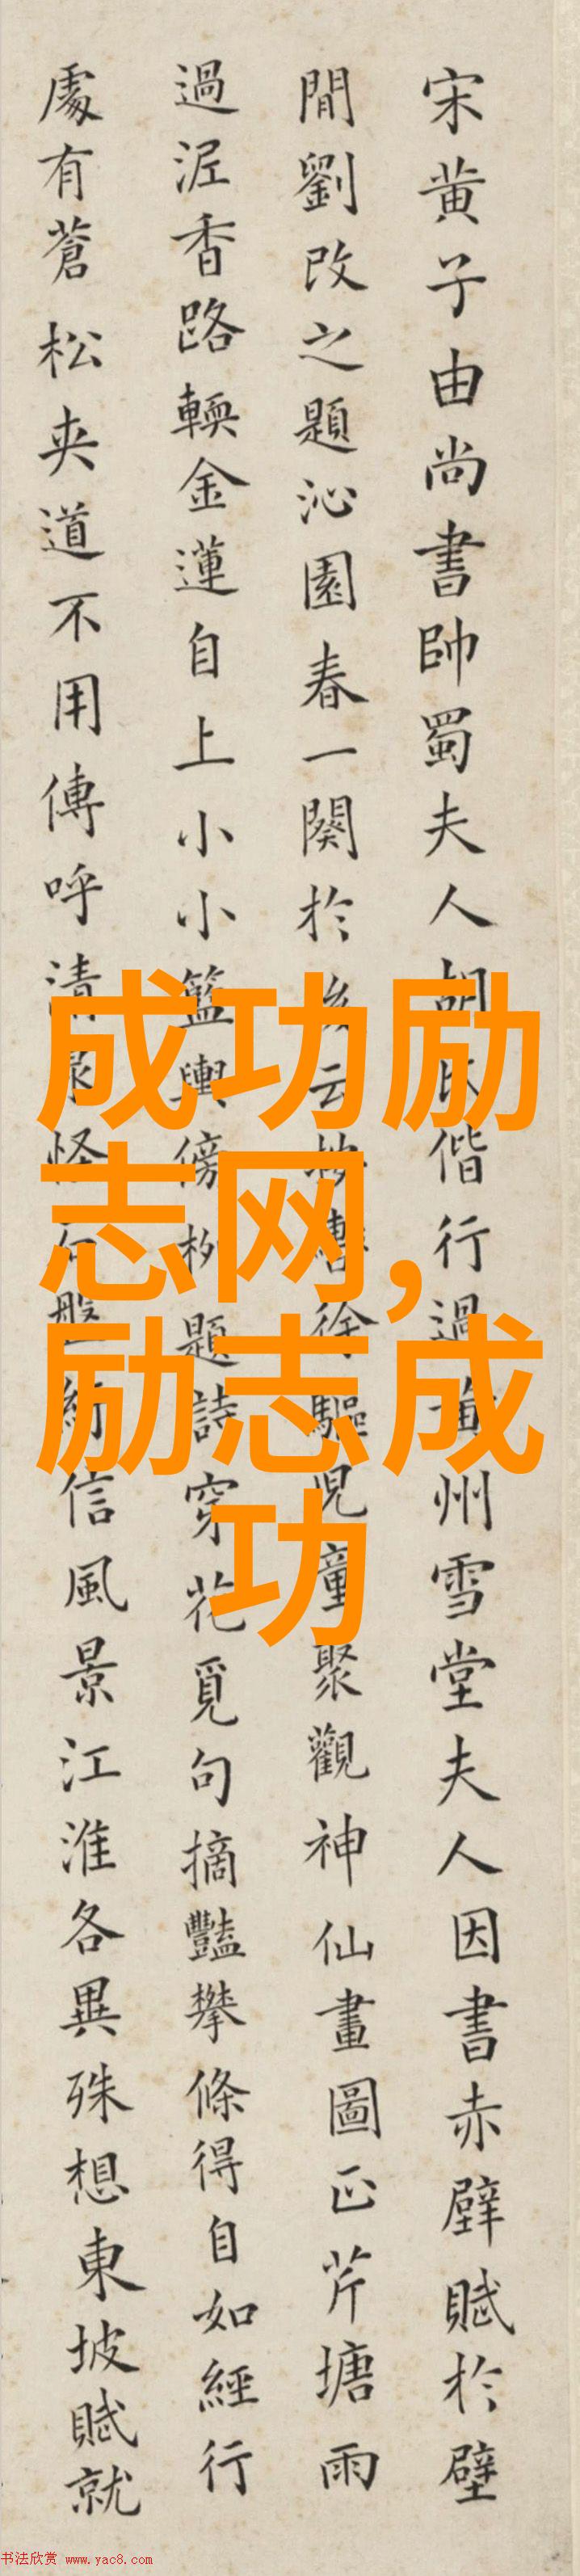 宋黄子由尚書帥蜀夫人胡氏偕行過黄州雪堂夫人因書赤壁賦於壁
間劉改之題沁園春一闋於後云按轡徐驅児童聚觀神仙畫圖正芹塘雨
過泥香路輭金蓮自上小小籃輿傍柳題詩穿花覓句摘豔攀條得自如經行
處有蒼松夾道不用傳呼清泉怪石盤紆信風景江淮各異殊想東坡賦就
成功励
志网,
励志成
功
书法欣赏 www.yac8.com